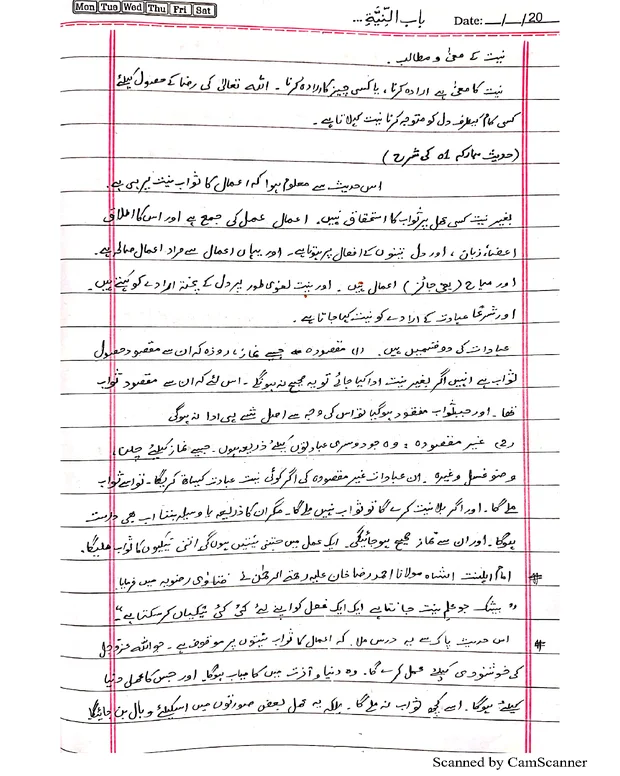 Mon Tue Wed Thu Fri Sat
باب النِّیَّۃِ...
Date: __/__/20__
نیت کے معنیٰ و مطالب۔
نیت کا معنیٰ ہے ارادہ کرنا، یا کسی چیز کا ارادہ کرنا۔ اللہ تعالیٰ کی رضا کے حصول کیلئے
کسی کام کیطرف دل کو متوجہ کرنا نیت کہلاتا ہے۔
(حدیث مبارکہ 01 کی شرح)
اس حدیث سے معلوم ہوا کہ اعمال کا ثواب نیت پر ہی ہے۔
بغیر نیت کسی عمل پر ثواب کا استحقاق نہیں۔ اعمال عمل کی جمع ہے اور اس کا اطلاق
اعضاء، زبان، اور دل تینوں کے افعال پر ہوتا ہے۔ اور یہاں اعمال سے مراد اعمال صالحہ ہے۔
اور مباح (یعنی جائز) اعمال ہیں۔ اور نیت لغوی طور پر دل کے پختہ ارادے کو کہتے ہیں۔
اور شرعاً عبادت کے ارادے کو نیت کہا جاتا ہے۔
عبادات کی دو قسمیں ہیں۔ (1) مقصودہ جیسے نماز، روزہ کہ ان سے مقصود حصول
ثواب ہے انہیں اگر بغیر نیت ادا کیا جائے تو یہ صحیح نہ ہونگے۔ اس لئے کہ ان سے مقصود ثواب
تھا۔ اور جب ثواب مفقود ہوگیا تو اس کی وجہ سے اصل شے ہی ادا نہ ہوگی
(2) غیر مقصودہ: وہ جو دوسری عبادتوں کیلئے ذریعہ ہوں۔ جیسے نماز کیلئے چلنا،
وضو غسل وغیرہ۔ ان عبادات غیر مقصودہ کی اگر کوئی نیت عبادت کیساتھ کریگا۔ تو اسے ثواب
ملے گا۔ اور اگر بلا نیت کرے گا تو ثواب نہیں ملے گا۔ مگر ان کا ذریعہ یا وسیلہ بننا اب بھی درست
ہوگا۔ اور ان سے نماز صحیح ہو جائیگی۔ ایک عمل میں جتنی نیتیں ہوں گی اتنی نیکیوں کا ثواب ملیگا۔
# امام اہلسنت الشاہ مولانا احمد رضا خان علیہ رحمۃ الرحمٰن نے فتاوٰی رضویہ میں فرمایا
"بیشک جو علم نیت جانتا ہے ایک ایک فعل کو اپنے لئے کئی کئی نیکیاں کر سکتا ہے"۔
# اس حدیث پاک سے یہ درس ملا کہ اعمال کا ثواب نیتوں پر موقوف ہے۔ جو اللہ عزوجل
کی خوشنودی کیلئے عمل کرے گا۔ وہ دنیا و آخرت میں کامیاب ہوگا۔ اور جس کا عمل دنیا
کیلئے ہوگا۔ اسے کچھ ثواب نہ ملے گا۔ بلکہ یہ عمل بعض صورتوں میں اسکیلئے وبال بن جائیگا
Scanned by CamScanner